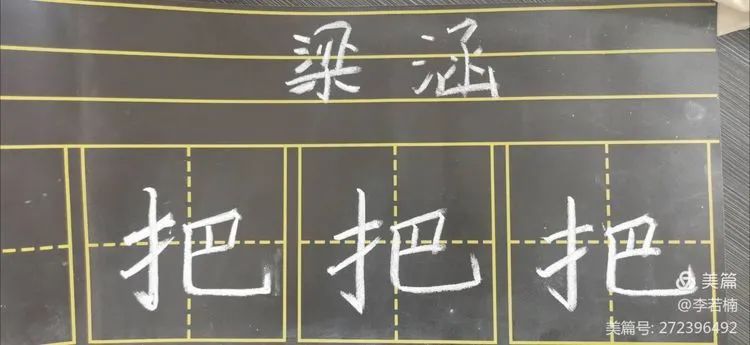 梁涵
把 把 把
美篇
@李若楠
美篇号: 272396492